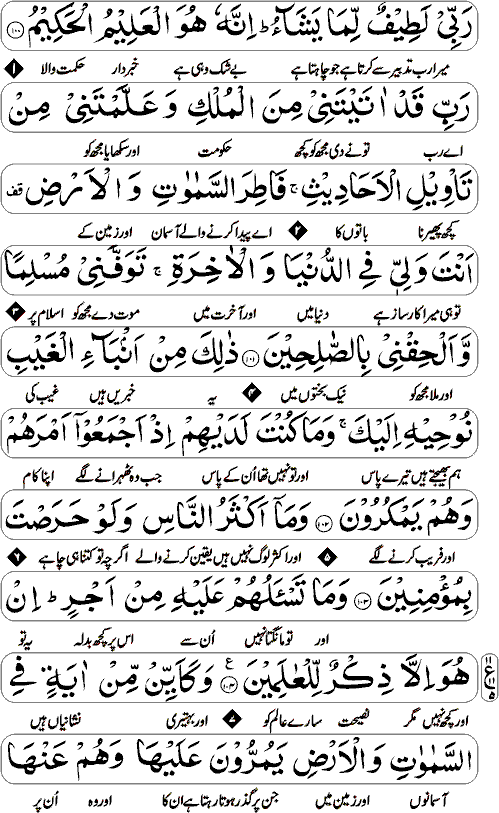 رَبِّيْ لَطِيْفٌ لِّمَا يَشَآءُ ؕ اِنَّهٗ هُوَ الْعَلِيْمُ الْحَكِيْمُ ﴿۱۰۰﴾
میرا رب تدبیر سے کرتا ہے جو چاہتا ہے بے شک وہی ہے خبردار حکمت والا ۱
رَبِّ قَدْ اٰتَيْتَنِيْ مِنَ الْمُلْكِ وَ عَلَّمْتَنِيْ مِنْ
اے رب تو نے دی مجھ کو کچھ حکومت اور سکھایا مجھ کو
تَاْوِيْلِ الْاَحَادِيْثِ ۚ فَاطِرَ السَّمٰوٰتِ وَ الْاَرْضِ قف
کچھ پھیرنا باتوں کا ۲ اے پیدا کرنے والے آسمان اور زمین کے
اَنْتَ وَلِيّٖ فِي الدُّنْيَا وَ الْاٰخِرَةِ ۚ تَوَفَّنِيْ مُسْلِمًا
تو ہی میرا کارساز ہے دنیا میں اور آخرت میں موت دے مجھ کو اسلام پر ۳
وَّ اَلْحِقْنِيْ بِالصّٰلِحِيْنَ ﴿۱۰۱﴾ ذٰلِكَ مِنْ اَنْۢبَآءِ الْغَيْبِ
اور ملا مجھ کو نیک بختوں میں ۴ یہ خبریں ہیں غیب کی
نُوْحِيْهِ اِلَيْكَ ۚ وَمَا كُنْتَ لَدَيْهِمْ اِذْ اَجْمَعُوْۤا اَمْرَهُمْ
ہم بھیجتے ہیں تیرے پاس اور تو نہیں تھا اُن کے پاس جب وہ ٹھہرانے لگے اپنا کام
وَهُمْ يَمْكُرُوْنَ ﴿۱۰۲﴾ وَمَاۤ اَكْثَرُ النَّاسِ وَلَوْ حَرَصْتَ
اور فریب کرنے لگے ۵ اور اکثر لوگ نہیں ہیں یقین کرنے والے اگرچہ تو کتنا ہی چاہے ۶
بِمُؤْمِنِيْنَ ﴿۱۰۳﴾ وَمَا تَسْـَٔلُهُمْ عَلَيْهِ مِنْ اَجْرٍ ؕ اِنْ
اور تو مانگتا نہیں اُن سے اس پر کچھ بدلہ یہ تو
هُوَ اِلَّا ذِكْرٌ لِّلْعٰلَمِيْنَ ﴿۱۰۴﴾ ع وَكَاَيِّنْ مِّنْ اٰيَةٍ فِي
اور کچھ نہیں مگر نصیحت سارے عالم کو ۷ اور بہتیری نشانیاں ہیں
السَّمٰوٰتِ وَالْاَرْضِ يَمُرُّوْنَ عَلَيْهَا وَهُمْ عَنْهَا
آسمانوں اور زمین میں جن پر گذر ہوتا رہتا ہے ان کا اور وہ اُن پر